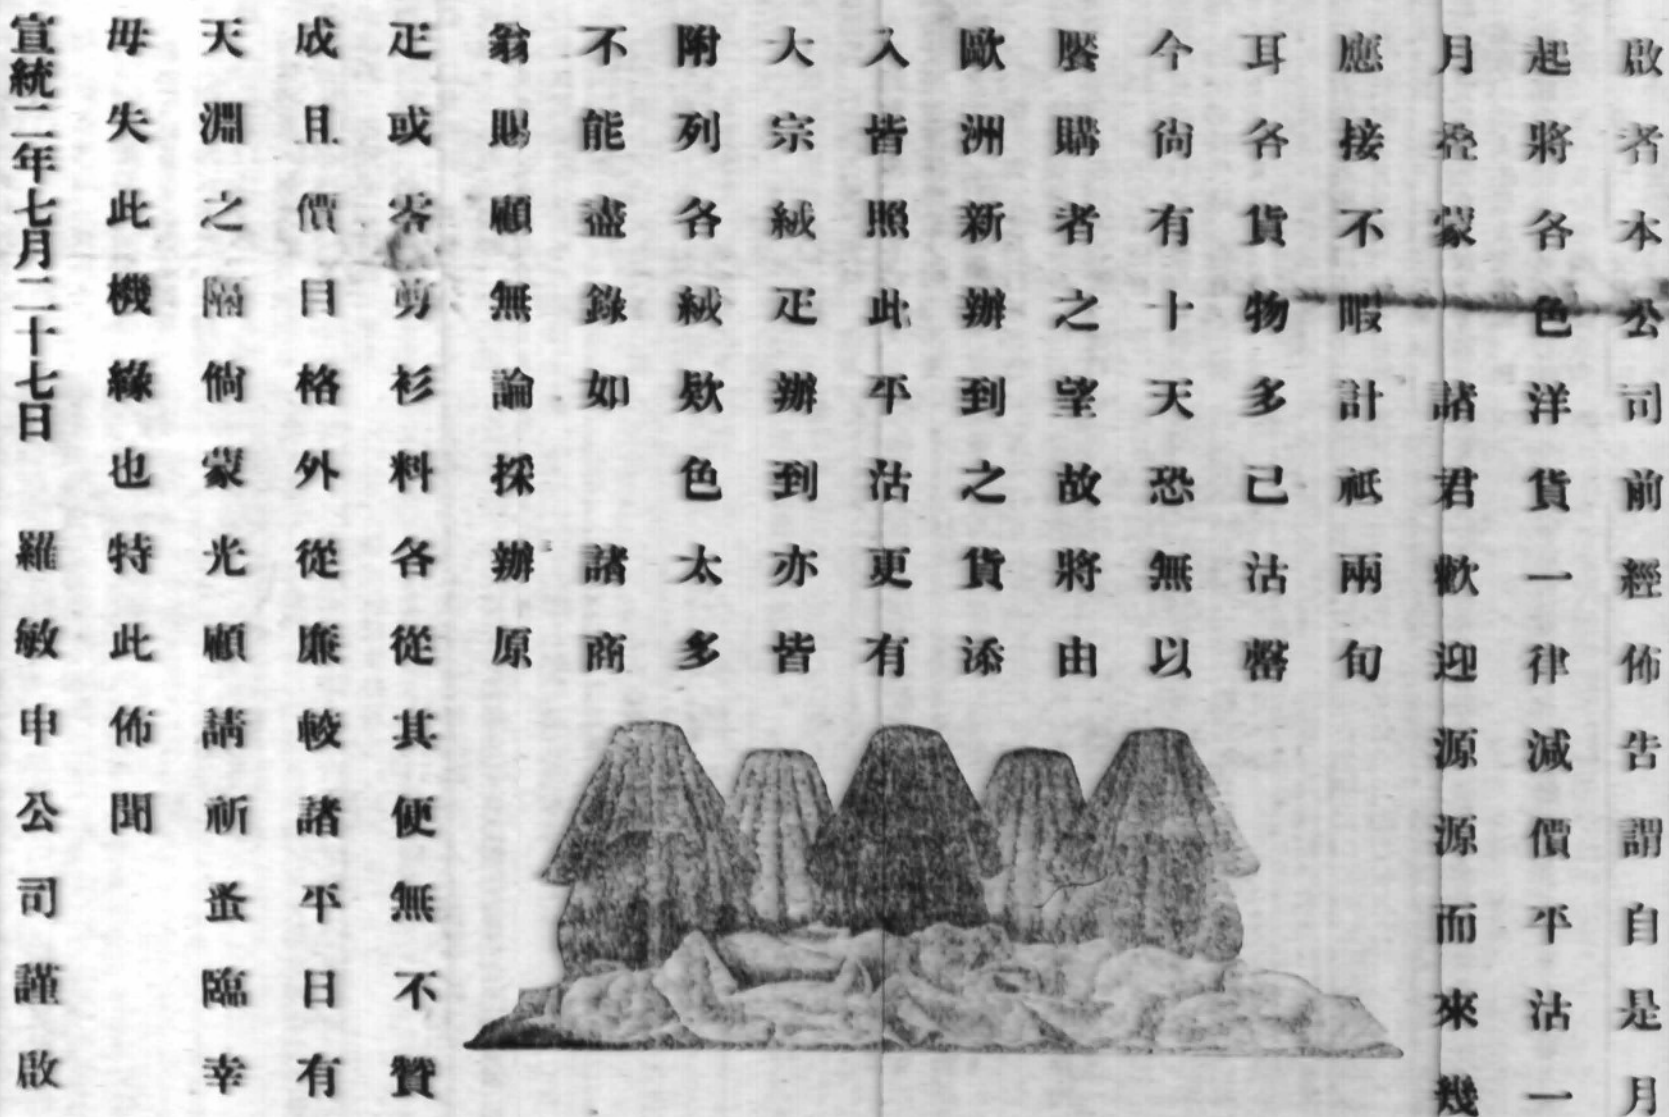 啟者本公司前經佈告謂自是月
起將各色洋貨一律減價平沽一
月叠蒙 諸君歡迎源源而來幾
應接不暇計祗兩旬
耳各貨物多已沽罄
今尚有十天恐無以
饜購者之望故將由
歐洲新辦到之貨添
入皆照此平沽更有
大宗絨疋辦到亦皆
附列各絨欵色太多
不能盡錄如 諸商
翁賜顧無論採辦原
疋或零剪衫料各從其便無不贊
成且價目格外從廉較諸平日有
天淵之隔倘蒙光顧請祈蚤臨幸
毋失此機緣也特此佈聞
宣統二年七月二十七日 羅敏申公司謹啟